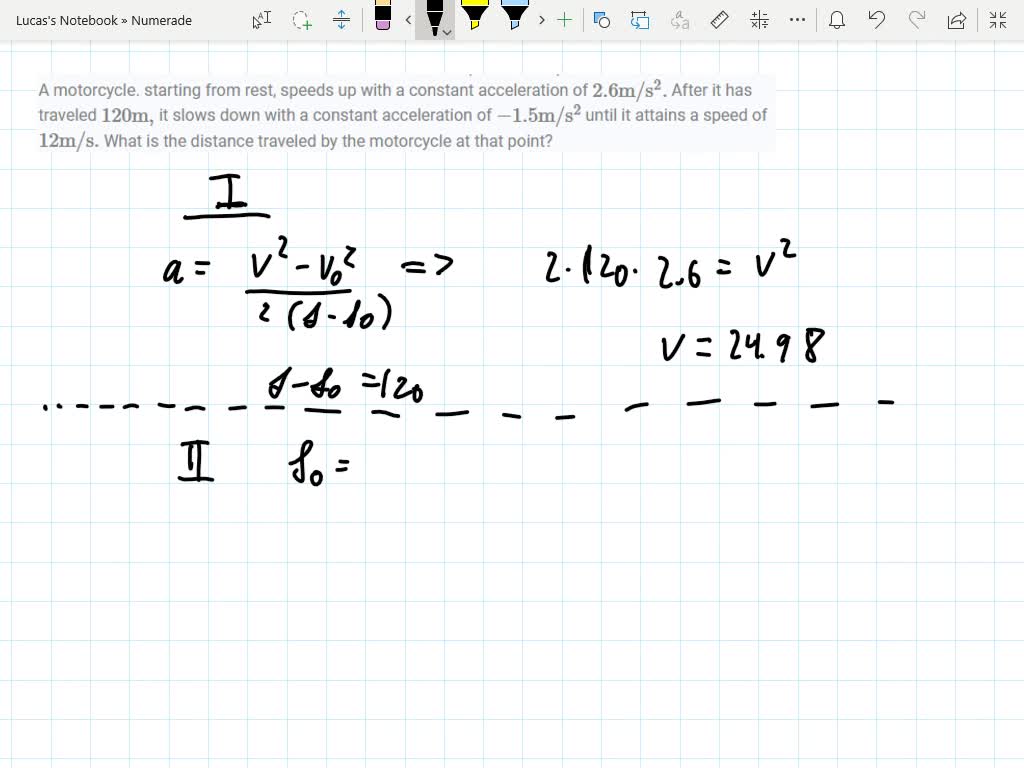 Lucas's Notebook » Numerade
A motorcycle. starting from rest, speeds up with a constant acceleration of 2.6m/s². After it has
traveled 120m, it slows down with a constant acceleration of −1.5m/s² until it attains a speed of
12m/s. What is the distance traveled by the motorcycle at that point?
I
a = (v² - v₀²) / (2 (s - s₀)) => 2·120·2.6 = v²
v = 24.98
s - s₀ = 120
II s₀ =